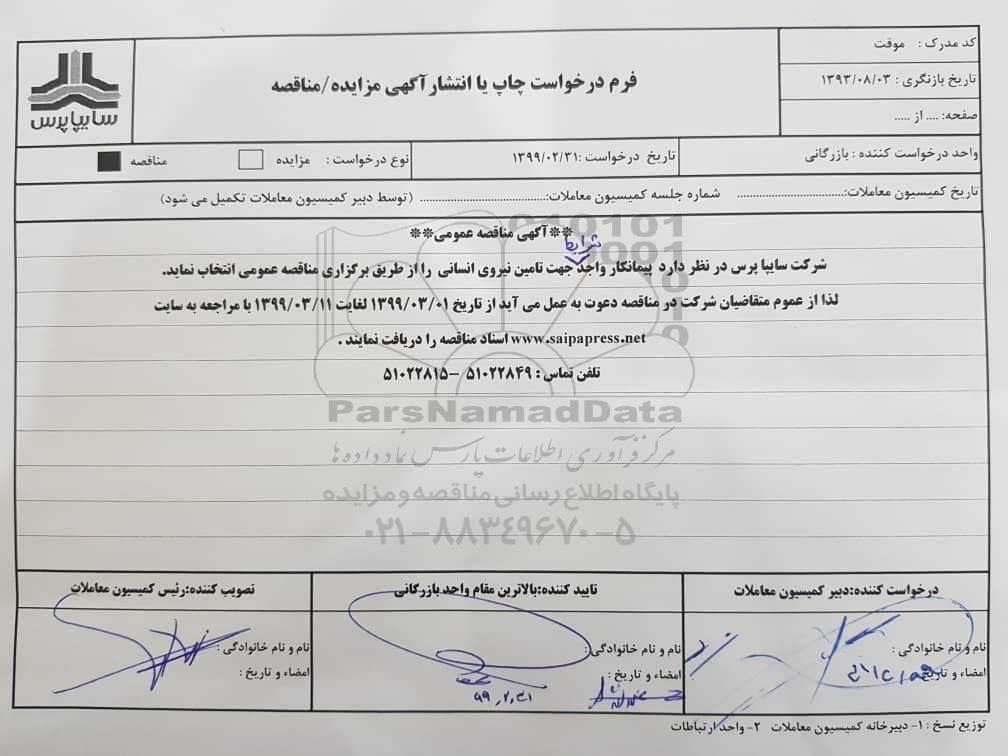 سایپا پرس
فرم درخواست چاپ یا انتشار آگهی مزایده/مناقصه
کد مدرک : موقت
تاریخ بازنگری : ۱۳۹۳/۰۸/۰۳
صفحه: .... از .....
واحد درخواست کننده : بازرگانی
تاریخ درخواست :۱۳۹۹/۰۲/۳۱
نوع درخواست : مزایده مناقصه
تاریخ کمیسیون معاملات:................................. شماره جلسه کمیسیون معاملات:....................................... (توسط دبیر کمیسیون معاملات تکمیل می شود)
**آگهی مناقصه عمومی**
شرایط
شرکت سایپا پرس در نظر دارد پیمانکار واجد جهت تامین نیروی انسانی را از طریق برگزاری مناقصه عمومی انتخاب نماید.
لذا از عموم متقاضیان شرکت در مناقصه دعوت به عمل می آید از تاریخ ۱۳۹۹/۰۳/۰۱ لغایت ۱۳۹۹/۰۳/۱۱ با مراجعه به سایت
www.saipapress.net اسناد مناقصه را دریافت نمایند .
تلفن تماس : ۵۱۰۲۲۸۴۹ –۵۱۰۲۲۸۱۵
ParsNamadData
مرکز فرآوری اطلاعات پارس نماد داده ها
پایگاه اطلاع رسانی مناقصه و مزایده
۰۲۱-۸۸۳۴۹۶۷۰-۵
درخواست کننده:دبیر کمیسیون معاملات
نام و نام خانوادگی :
امضاء و تاریخ :
تایید کننده:بالاترین مقام واحد بازرگانی
نام و نام خانوادگی :
امضاء و تاریخ :
۹۹,۲,۳۱
تصویب کننده:رئیس کمیسیون معاملات
نام و نام خانوادگی :
امضاء و تاریخ :
توزیع نسخ : ۱- دبیرخانه کمیسیون معاملات ۲- واحد ارتباطات